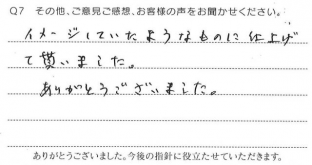 Q7 その他、ご意見ご感想、お客様の声をお聞かせください。
イメージしていたようなものに仕上げ
て貰いました。
ありがとうございました。
ありがとうございました。今後の指針に役立たせていただきます。